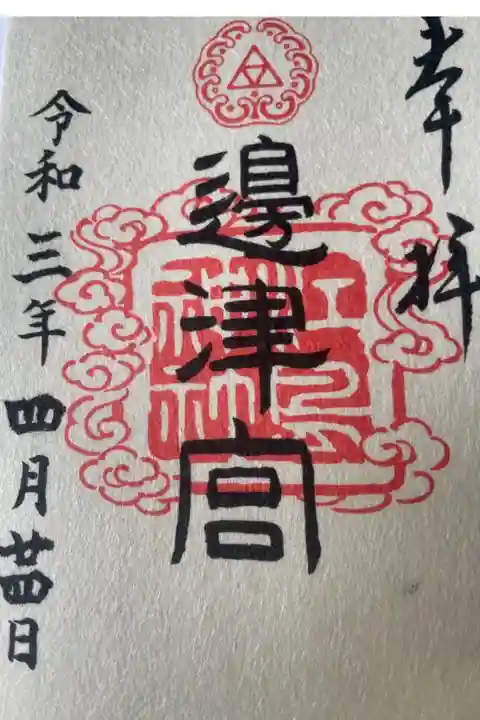 奉拝
邊津宮
令和三年四月廿四日